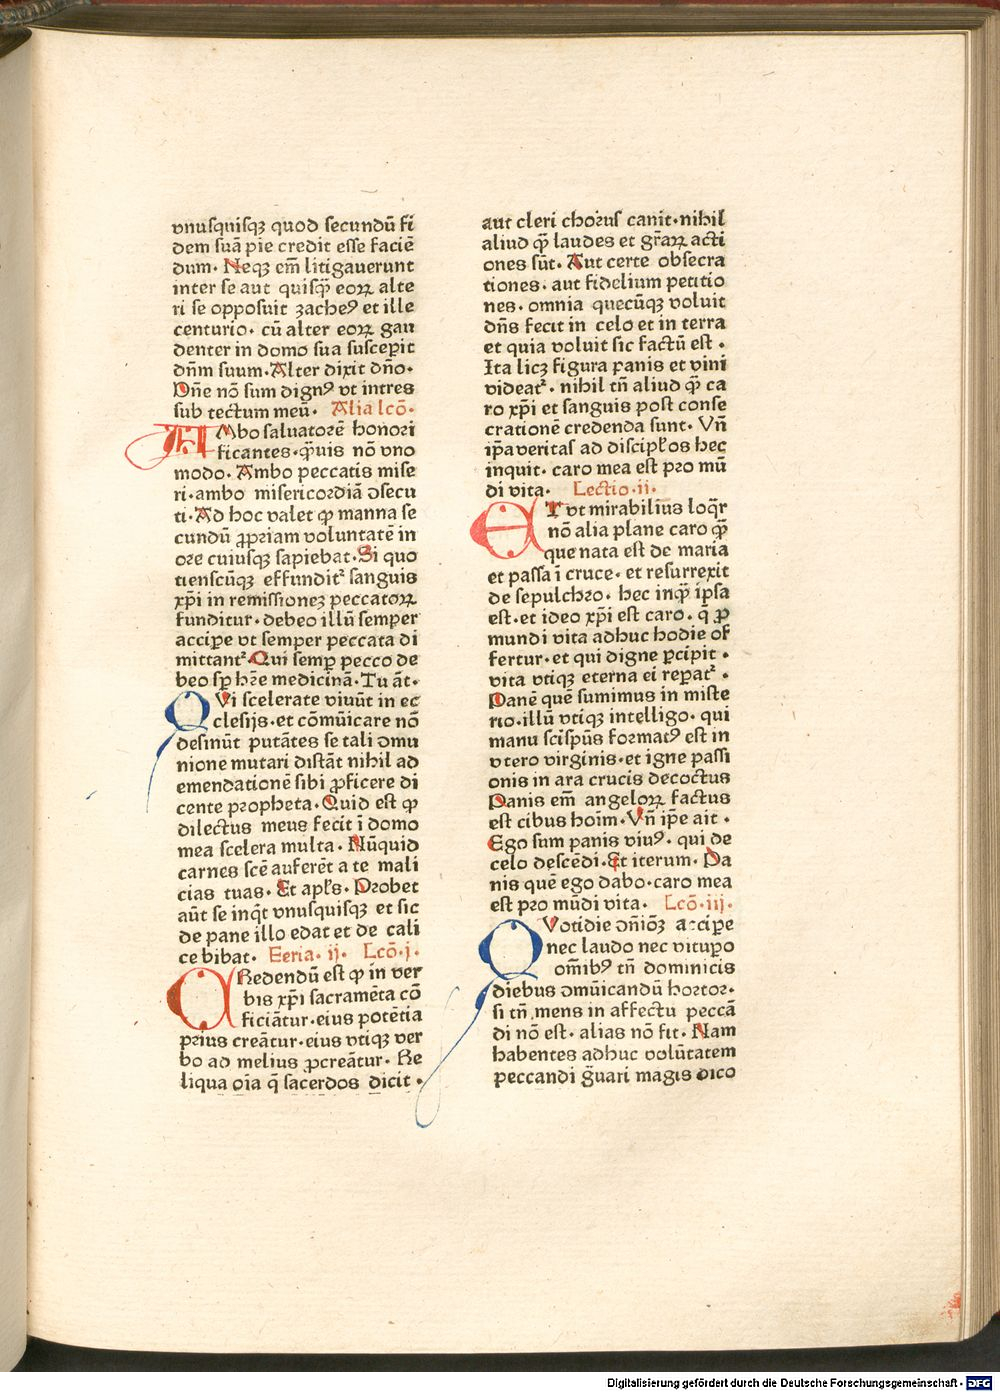 vnusquisqꝫ quod secundū fi
dem suā pie credit esse faciē
dum. Neqꝫ em̄ litigauerunt
inter se aut quisq̄ȝ eoꝝ alte
ri se opposuit zacheꝰ et ille
centurio. cū alter eoꝝ gau
denter in domo sua suscepit
dn̄m suum. Alter dixit dn̄o.
Dn̄e nō sum dignꝰ vt intres
sub tectum meū. Alia lcō.
AMbo saluatorē honori
ficantes. q̄uis nō vno
modo. Ambo peccatis mise
ri. ambo misericordiā ↄsecu
ti. Ad hoc valet ꝙ manna se
cundū ꝓpriam voluntatē in
ore cuiusqꝫ sapiebat. Si quo
tienscūqꝫ effunditᷣ sanguis
xp̄i in remissioneꝫ peccatoꝝ
funditur. debeo illū semper
accipe vt semper peccata di
mittantᷣ. Qui semꝑ pecco de
beo sꝑ hr̄e medicinā. Tu āt.
QVi scelerate viuūt in ec
clesijs. et cōmūicare nō
desinūt putātes se tali ↄmu
nione mutari distāt nihil ad
emendationē sibi ꝓficere di
cente propheta. Quid est ꝙ
dilectus meus fecit ī domo
mea scelera multa. Nūquid
carnes scē auferēt a te mali
cias tuas. Et apl̄s. Probet
aūt se inq̄t vnusquisqꝫ et sic
de pane illo edat et de cali
ce bibat. Feria. ij. Lcō. j.
CRedendū est ꝙ in ver
bis xp̄i sacramēta cō
ficiātur. eius potētia
prius creātur. eius vtiqꝫ ver
bo ad melius ꝓcreātur. Re
liqua oīa q̄ sacerdos dicit.
aut cleri chorus canit. nihil
aliud q̄ȝ laudes et gr̄aꝝ acti
ones sūt. Aut certe obsecra
tiones. aut fidelium petitio
nes. omnia quecūqꝫ voluit
dn̄s fecit in celo et in terra
et quia voluit sic factū est.
Ita licꝫ figura panis et vini
videatᷣ. nihil tn̄ aliud q̄ȝ ca
ro xp̄i et sanguis post conse
crationē credenda sunt. Vn̄
ip̄a veritas ad discipl̄os hec
inquit. caro mea est pro mū
di vita. Lectio. ii.
ET vt mirabilius loq̄r
nō alia plane caro q̄ȝ
que nata est de maria
et passa ī cruce. et resurrexit
de sepulchro. hec inq̄ȝ ipsa
est. et ideo xp̄i est caro. q̄ ꝓ
mundi vita adhuc hodie of
fertur. et qui digne ꝑcipit.
vita vtiqꝫ eterna ei reꝑatᷣ.
Panē quē sumimus in miste
rio. illū vtiqꝫ intelligo. qui
manu sc̄ispūs formatꝰ est in
vtero virginis. et igne passi
onis in ara crucis decoctus
Panis em̄ angeloꝝ factus
est cibus hoīm. Vn̄ ip̄e ait.
Ego sum panis viuꝰ. qui de
celo descēdi. Et iterum. Pa
nis quē ego dabo. caro mea
est pro mūdi vita. Lcō. iij.
QVotidie dn̄iōꝫ accipe
nec laudo nec vitupo
om̄ibꝰ tn̄ dominicis
diebus ↄmūicandū hortor.
si tn̄ mens in affectu peccā
di nō est. alias nō fit. Nam
habentes adhuc volūtatem
peccandi g̈uari magis dico
Digitalisierung gefördert durch die Deutsche Forschungsgemeinschaft - DFG